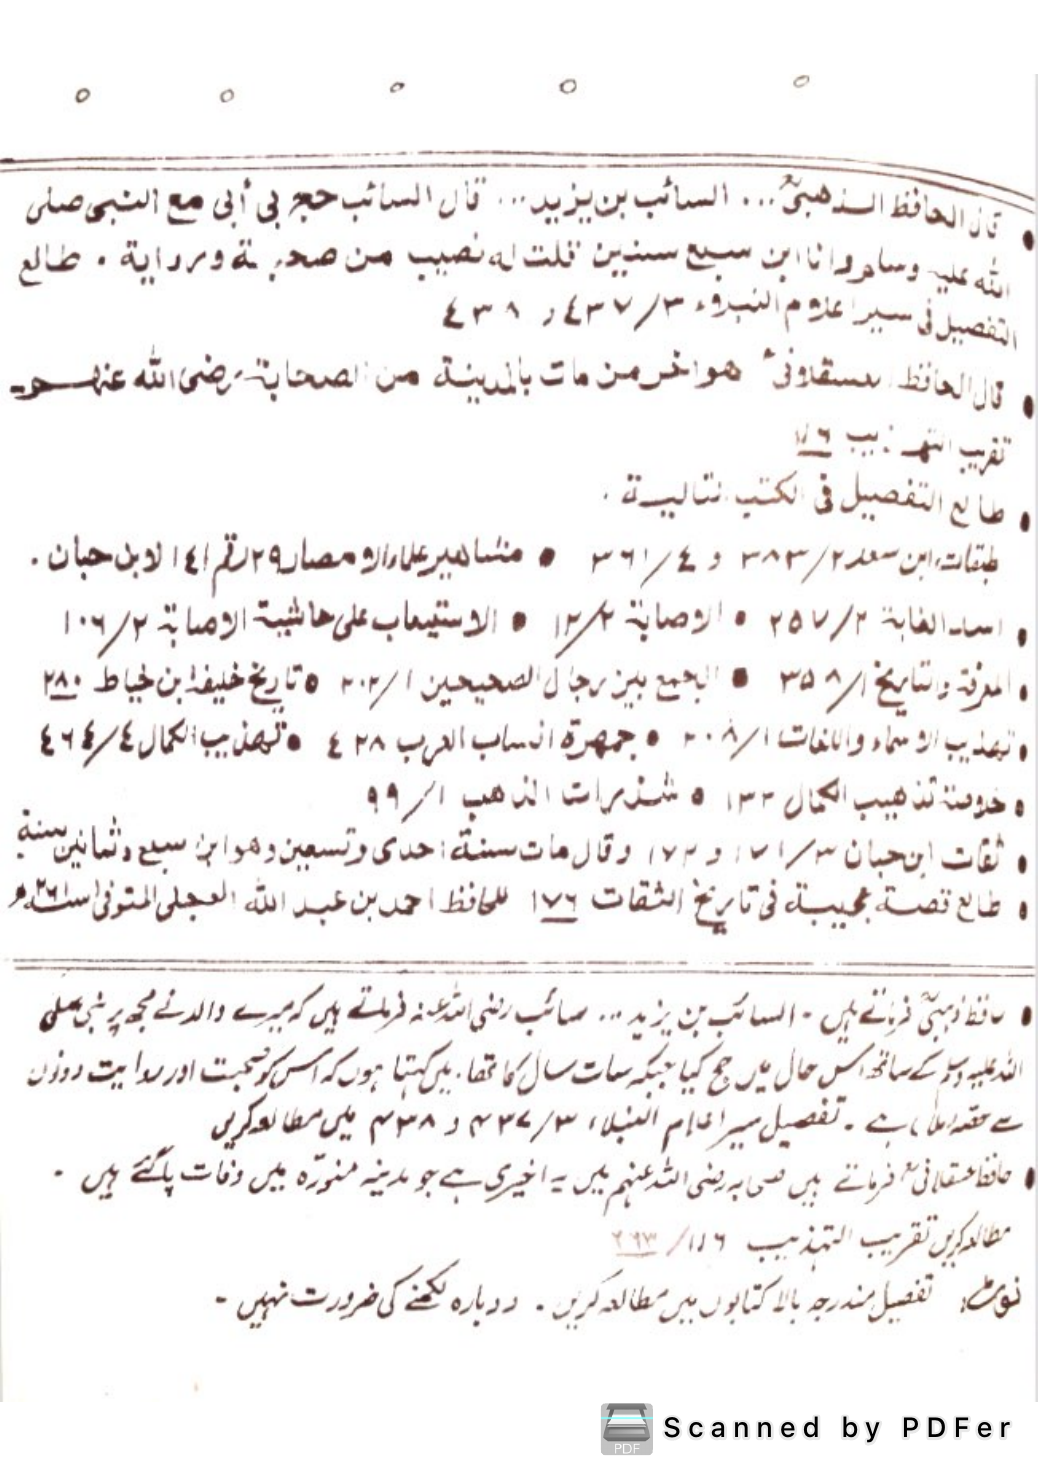 • قال الحافظ الذهبیؒ ... السائب بن یزید ... قال السائب حج بی أبی مع النبی صلی
الله علیہ وسلم وانا ابن سبع سنین قلت له نصیب من صحبة وروایة ۔ طالع
التفصیل فی سیر اعلام النبلاء ٤٣٧/٣ و ٤٣٨
• قال الحافظ العسقلانیؒ هو اخر من مات بالمدینة من الصحابة رضی الله عنهم ۔
تقریب التهذیب ١١٦
• طالع التفصیل فی الکتب التالیة ۔
طبقات ابن سعد ٣٨٣/٢ و ٣٦١/٤ • مشاهیر علماء الامصار ٢٩ رقم ١٤١ لابن حبان ۔
• اسد الغابة ٢٥٧/٢ • الاصابة ١٢/٢ • الاستیعاب علی حاشیة الاصابة ١٠٦/٢
• المعرفة والتاریخ ٣٥٨/١ • الجمع بین رجال الصحیحین ٢٠٢/١ • تاریخ خلیفة ابن خیاط ٢٨٠
• تهذیب الاسماء واللغات ٢٠٨/١ • جمهرة انساب العرب ٤٢٨ • تهذیب الکمال ٤٦٤/٤
• خلاصة تذهیب الکمال ١٣٢ • شذرات الذهب ٩٩/١
• ثقات ابن حبان ١٧١/٣ و ١٧٢ وقال مات سنة احدی وتسعین وهو ابن سبع وثمانین سنة
• طالع قصة عجیبة فی تاریخ الثقات ١٧٦ للحافظ احمد بن عبد الله العجلی المتوفی سنة ٢٦١ھ
• حافظ ذہبیؒ فرماتے ہیں ۔ السائب بن یزید ... سائب رضی اللہ عنہ فرماتے ہیں کہ میرے والد نے مجھ پر نبی صلی
اللہ علیہ وسلم کے ساتھ اس حال میں حج کیا جبکہ سات سال کا تھا ۔ میں کہتا ہوں کہ اس کو صحبت اور روایت دونوں
سے حصہ ملا ہے ۔ تفصیل سیر اعلام النبلاء ۴۳۷/۳ و ۴۳۸ میں مطالعہ کریں
• حافظ عسقلانیؒ فرماتے ہیں صحابہ رضی اللہ عنہم میں یہ اخیری ہے جو مدینہ منوّرہ میں وفات پا گئے ہیں ۔
مطالعہ کریں تقریب التہذیب ۱۱۶/
نوٹ: تفصیل مندرجہ بالا کتابوں میں مطالعہ کریں ۔ دوبارہ لکھنے کی ضرورت نہیں ۔
PDF
Scanned by PDFer